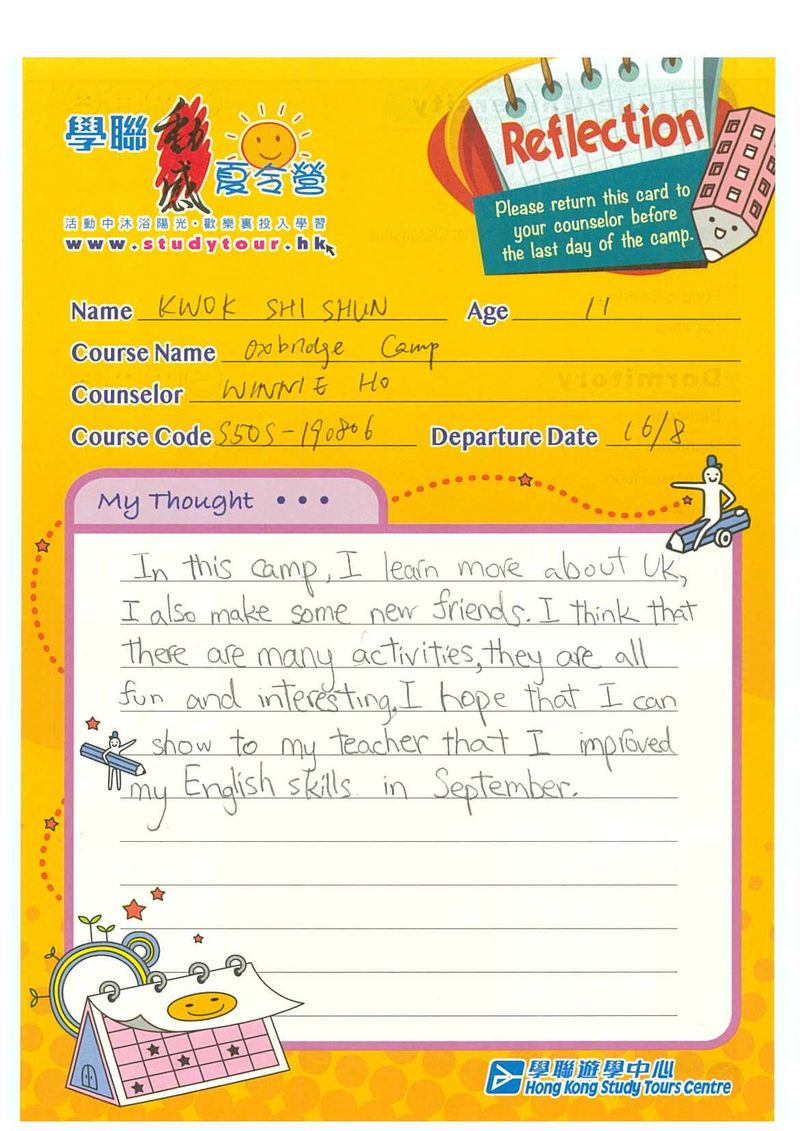 學聯 動感 夏令營
活動中沐浴陽光・歡樂裏投入學習
www.studytour.hk
Reflection
Please return this card to
your counselor before
the last day of the camp.
Name KWOK SHI SHUN Age 11
Course Name Oxbridge Camp
Counselor WINNIE HO
Course Code S50S-190806 Departure Date 16/8
My Thought • • •
In this camp, I learn more about UK,
I also make some new friends. I think that
there are many activities, they are all
fun and interesting, I hope that I can
show to my teacher that I improved
my English skills in September.
學聯遊學中心
Hong Kong Study Tours Centre